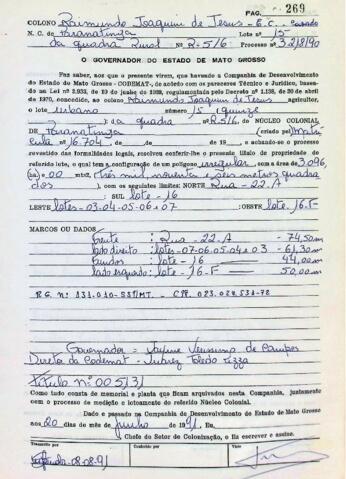 PAG. Nº 269
COLONO Raimundo Joaquim de Jesus - E.C. - Casado
N. C. de Paranatinga Lote nº 15
da quadra Rural Nº R-5/6 Processo nº 3218/90
O GOVERNADOR DO ESTADO DE MATO GROSSO
Faz saber, aos que a presente virem, que havendo a Companhia de Desenvolvimento
do Estado de Mato Grosso - CODEMAT-, de acordo com os pareceres Técnico e Jurídico, basea-
da na Lei nº 2.933, de 19 de Junho de 1939, regulamentada pelo Decreto nº 1.138, de 20 de
abril de 1970, concedido, ao colono Raimundo Joaquim de Jesus agricultor,
o lote urbano 15 ( Quinze
); da quadra Nº R-5/6, DO NÚCLEO COLONIAL
DE Paranatinga (criado pela Matrí
cula 16.704, de de de 19 , e achando-se o processo
revestido das formalidades legais, resolveu conferir-lhe o presente título de propriedade do
referido lote, o qual tem a configuração de um polígono irregular, com a área de 3.096,
(ha) 00 mts2, três mil, noventa e seis metros quadra
dos ), com os seguintes limites: NORTE Rua - 22-A
SUL lote - 16
LESTE lotes - 03-04-05-06 e 07 :OESTE lote. 16-F
MARCOS OU DADOS
Frente : Rua - 22-A - 74,50m
lado direito : lotes - 07-06-05-04 e 03 - 61,30m
fundos : lote - 16 - 44,00m
lado esquerdo : lote - 16-F - 50,00m
R.G. nº 131.010-SSP/MT. - CPF. 023.024.531-72
Governador = Jayme Veríssimo de Campos
Diretor da Codemat - Juarez Toledo Pizza
Título nº 005131
Como tudo consta do memorial e planta que ficam arquivados nesta Companhia, juntamente
com o processo de medição e loteamento do referido Núcleo Colonial.
Dado e passado na Companhia de Desenvolvimento do Estado de Mato Grosso
aos 20 dias do mês de Junho de 1991, Eu,
Chefe do Setor de Colonização, o fiz escrever e assino.
Transcrito por Conferido por Visto
08.08.91